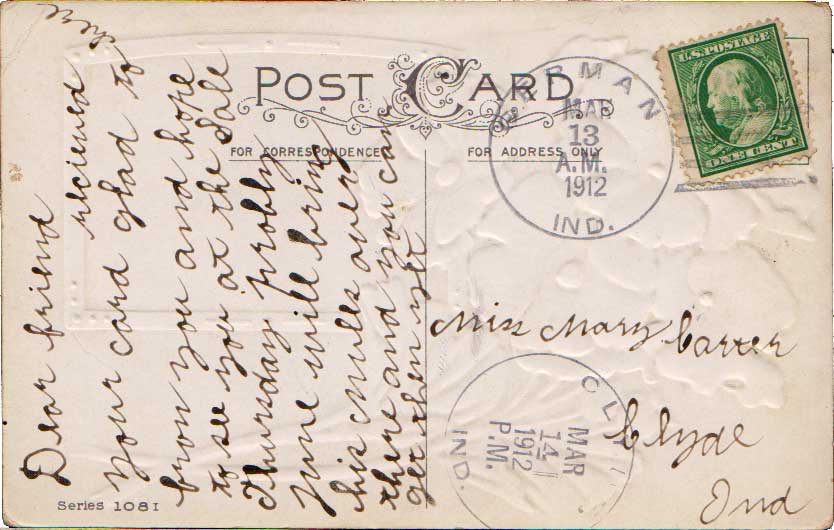 POST CARD
FOR CORRESPONDENCE
FOR ADDRESS ONLY
U.S. POSTAGE
ONE CENT
MAR
13
A.M.
1912
IND.
Dear friend
recieved
your card glad to
hear
from you and hope
to see you at the Sale
Thursday probly
June will bring
his mules over
there and you can
get them yet
Miss Mary Carter
Clyde
Ind
MAR
14
1912
P.M.
IND.
Series 1081